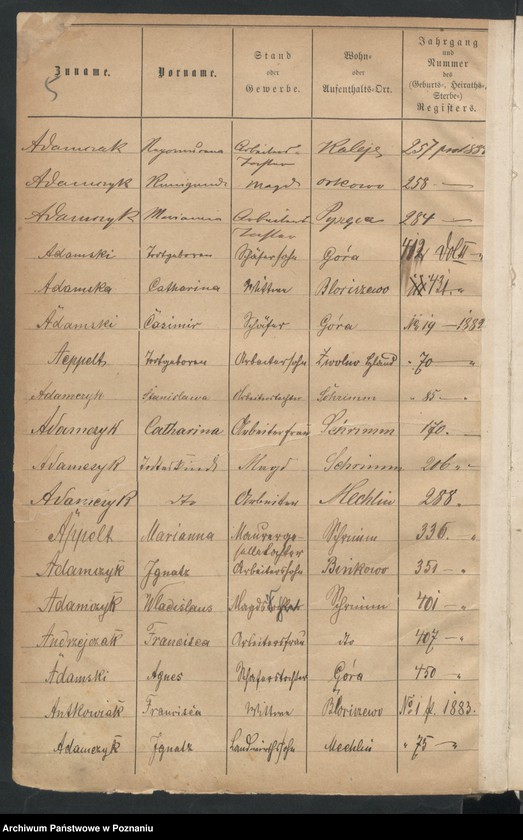 Zuname. Vorname. Stand oder Gewerbe. Wohn- oder Aufenthalts-Ort. Jahrgang und Nummer des (Geburts-, Heiraths-, Sterbe-) Registers.
Adamczak Arbeiters- Tochter 257
Adamczyk Kunigunde Magd Orkowo 258 —
Adamczyk Marianna Arbeiters Tochter Pyzgca 284 —
Adamski Todtgeboren Schäfersohn Góra 412 Vol II — "
Adamska Catharina Wittwe 431 "
Adamski Casimir Schäfer Góra No 19 — 1882
Aeppelt Todtgeboren Arbeitersohn " 70 — "
Adamczyk Stanislawa Arbeitertochter Schrimm " 85 — "
Adamczyk Catharina Arbeiterfrau Schrimm 170. —
Adamczyk Magd Schrimm 206 — "
Adamczyk dto Arbeiter Mechlin 288. —
Äppelt Marianna Maurerge- sellentochter Schrimm 336. — "
Adamczyk Ignatz Arbeitersohn Binkowo 351 — "
Adamczyk Wladislaus Schrimm 401 — "
Andrzejczak Francisca Arbeitersfrau dto 407 — "
Adamski Agnes Schäferstochter Góra 450 — "
Antkowiak Francisca Wittwe No 1 p. 1883.
Adamczyk Ignatz Landwirthssohn Mechlin " 75 — "
Archiwum Państwowe w Poznaniu